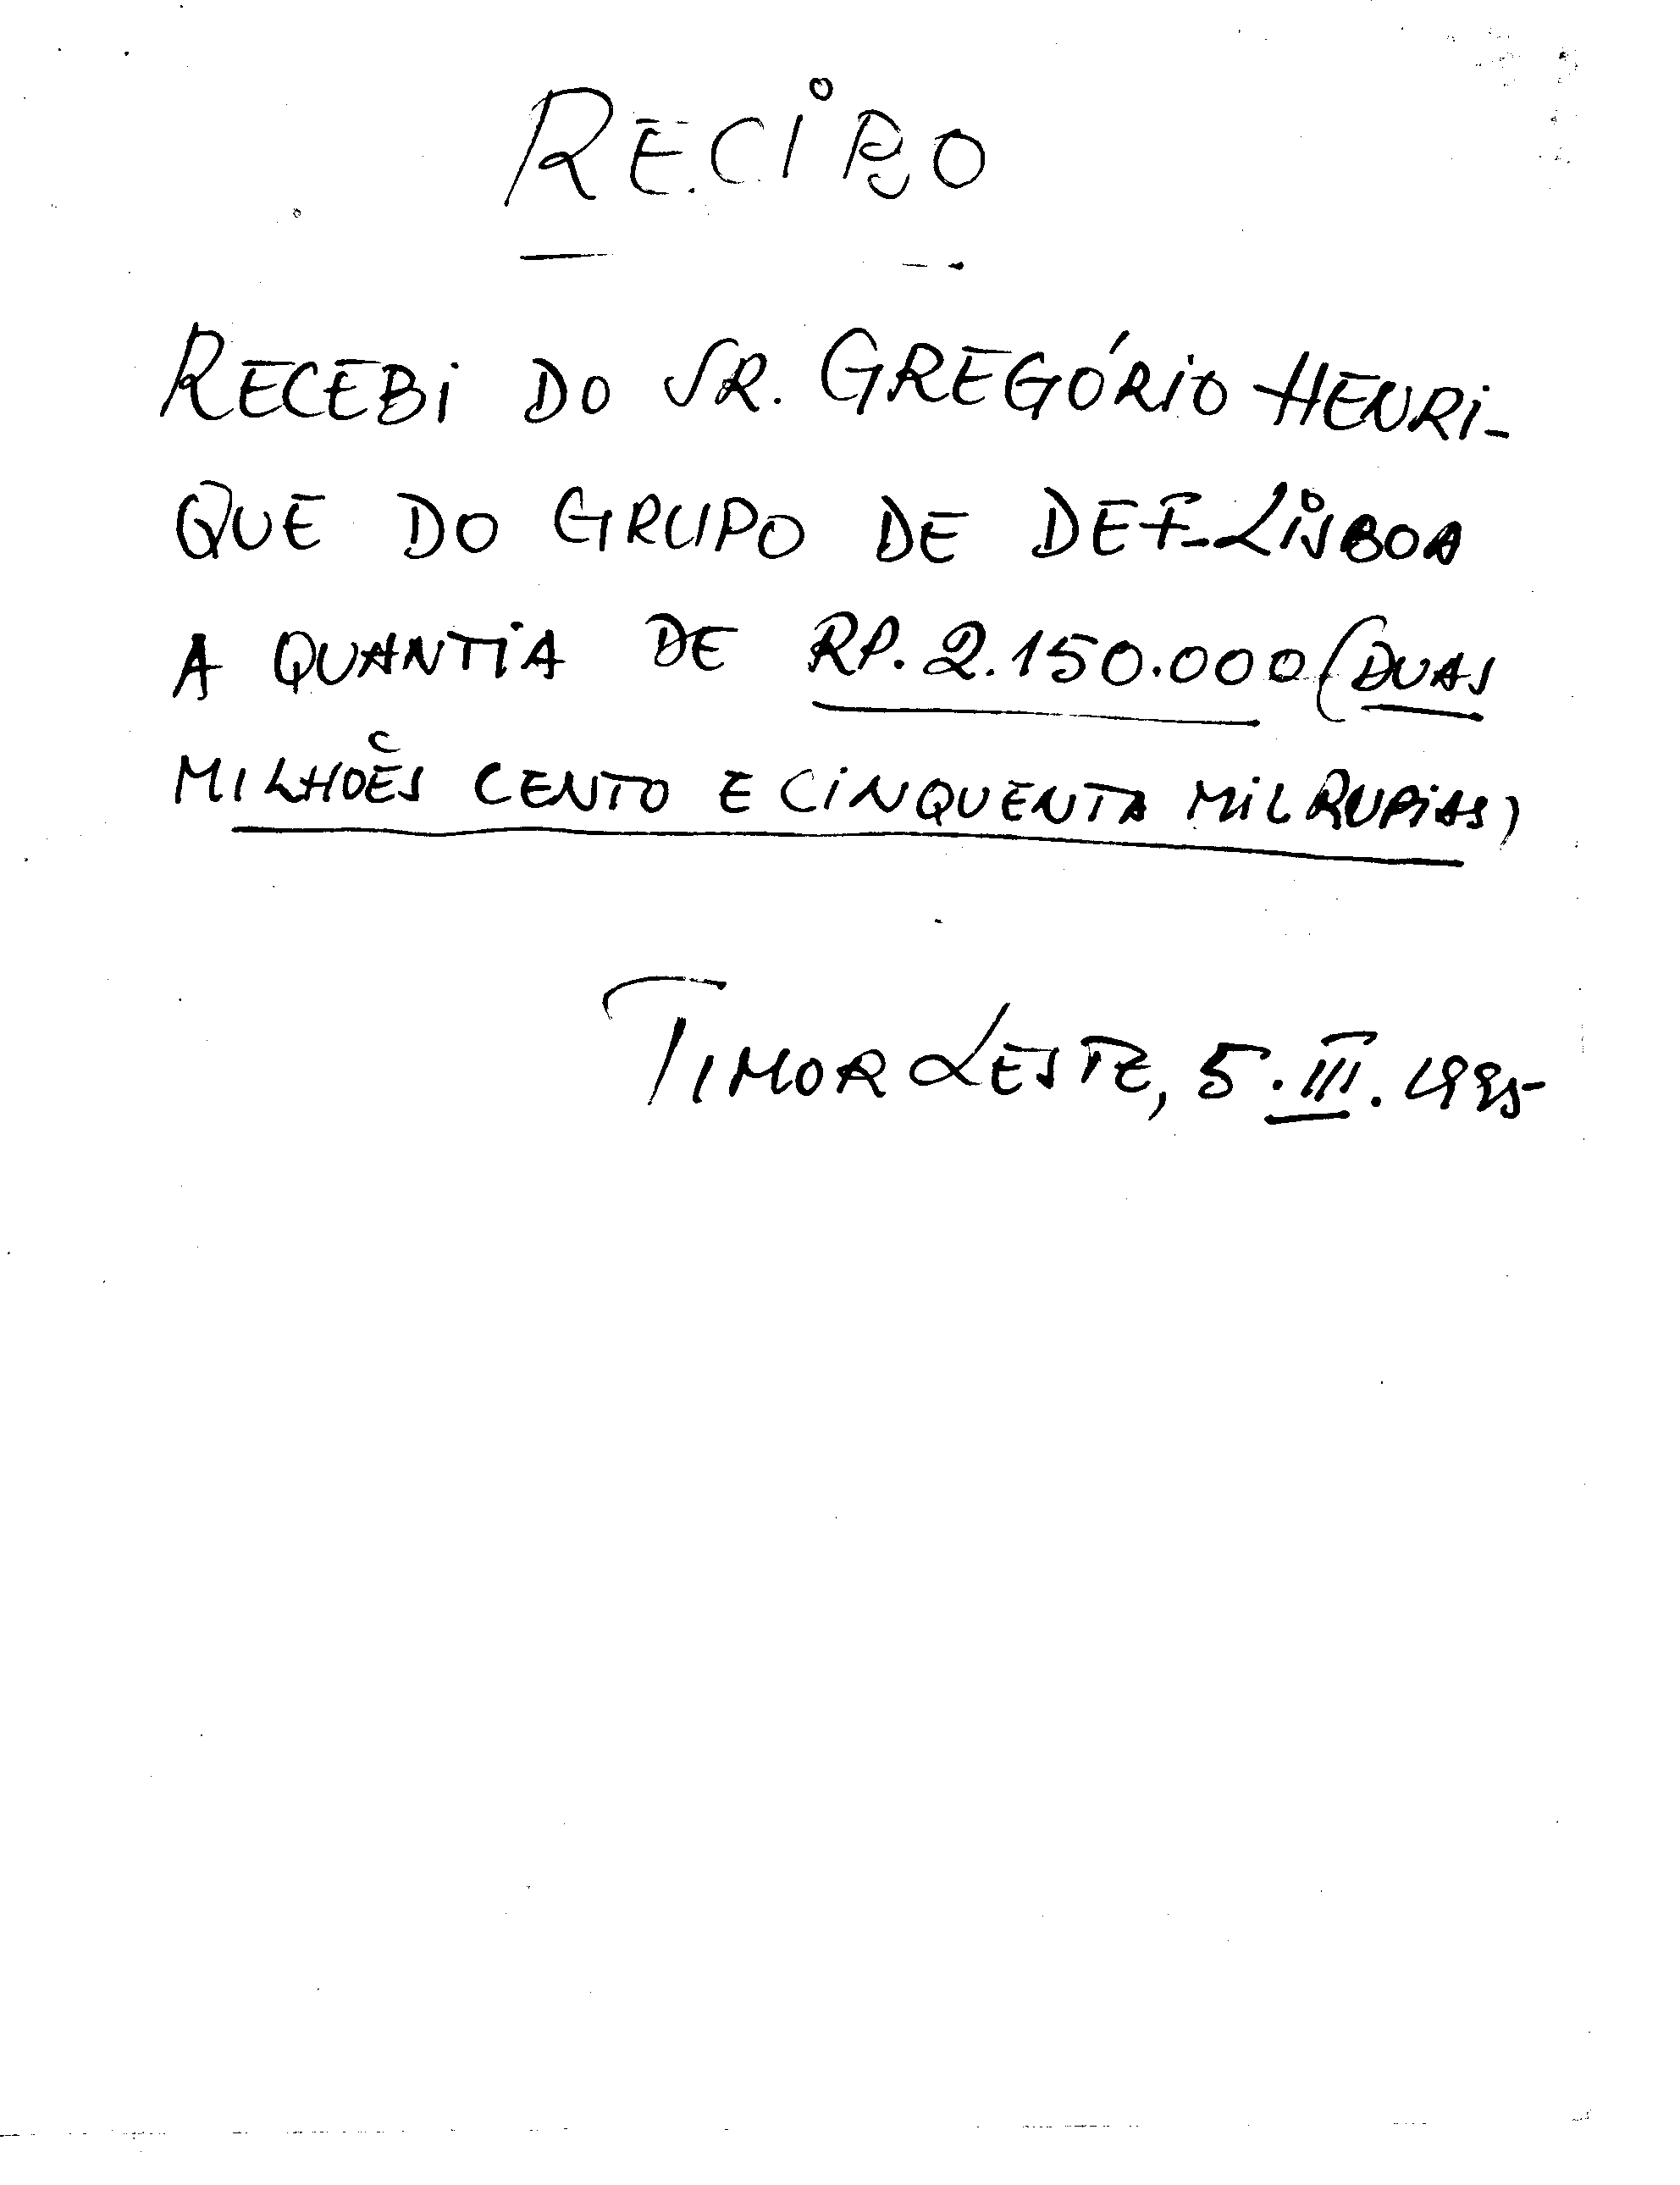 RECIBO
RECEBI DO SR. GREGÓRIO HENRI-
QUE DO GRUPO DE DEF-LISBOA
A QUANTIA DE RP. 2.150.000 (DUAS
MILHOES CENTO E CINQUENTA MIL RUPIAS)
TIMOR LESTE, 5.III.1995